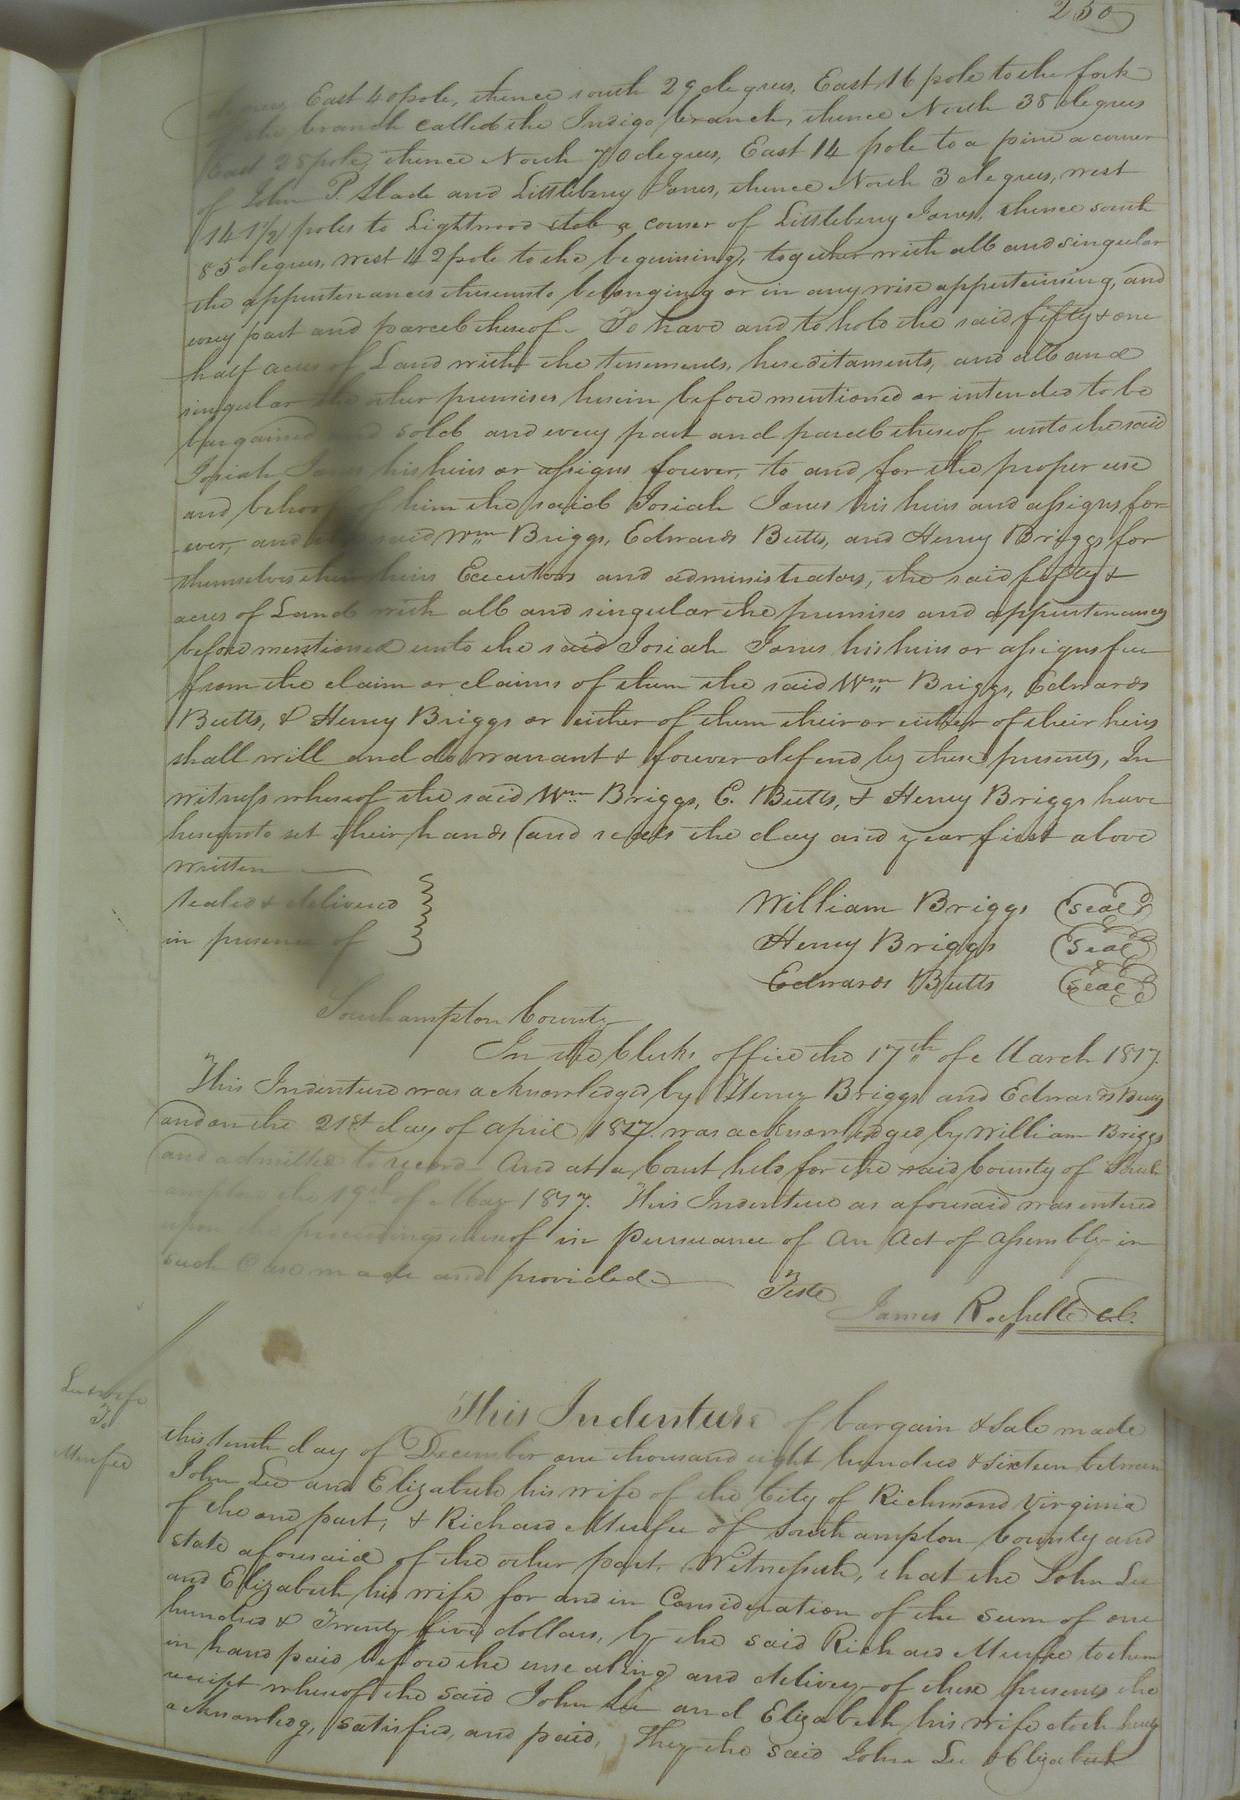 250
East 40 pole, thence south 29 degrees, East, 16 pole to the fork
the branch called the Indigo branch, thence North 38 degrees
East 25 pole, thence North 70 degrees, East 14 pole to a pine a corner
of John P. Slade and Littleberry Jones, thence North 3 degrees, west
14 1/2 poles to Lightwood stob a corner of Littleberry Jones, thence south
85 degrees, west 42 pole to the beginning, together with all and singular
the appurtenances thereunto belonging or in any wise appertaining, and
every part and parcel thereof. To have and to hold the said fifty & one
half acres of Land with the tenements, hereditaments, and all and
singular the other premises herein before mentioned or intended to be
bargained and sold and every part and parcel thereof unto the said
Josiah Jones his heirs or assigns forever, to and for the proper use
and behoof of him the said Josiah Jones his heirs and assigns, for-
-ever, and the said Wm Briggs, Edwards Butts, and Henry Briggs for
themselves their heirs Executors and administrators, the said fifty &
acres of Land with all and singular the premises and appurtenances
before mentioned unto the said Josiah Jones his heirs or assigns free
from the claim or claims of them the said Wm Briggs, Edwards
Butts, & Henry Briggs or either of them their or either of their heirs,
shall will and do warrant & forever defend by these presents, In
witness whereof the said Wm Briggs, E. Butts, & Henry Briggs have
hereunto set their hands and seals the day and year first above
written
Sealed & delivered
in presence of
William Briggs (Seal)
Henry Briggs (Seal)
Edwards Butts (Seal)
Southampton County
In the Clerks office the 17th of March 1817.
This Indenture was acknowledged by Henry Briggs and Edwards Butts
and on the 21st day of April 1817. was acknowledged by William Briggs
and admitted to record And at a Court held for the said County of South
ampton the 19th of May 1817. This Indenture as aforesaid was entered
upon the proceedings thereof in pursuance of An Act of Assembly in
such Case made and provided
Teste
James Rochelle C.C.
Lee & wife
To
Murfee
This Indenture of bargain & Sale made
this tenth day of December one thousand eight hundred & sixteen between
John Lee and Elizabeth his wife of the City of Richmond Virginia
of the one part, & Richard Murfee of Southampton County and
state aforesaid of the other part. Witnesseth, that the John Lee
and Elizabeth his wife for and in Consideration of the sum of one
hundred & Twenty five dollars, by the said Richard Murfee to them
in hand paid before the unsealing and delivery of these presents the
receipt whereof the said John Lee and Elizabeth his wife doth hereby
acknowledg, satisfied, and paid, They the said John Lee & Elizabeth